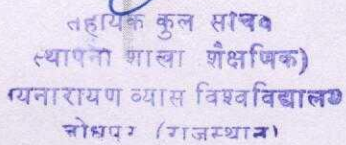 सहायक कुल सचिव
स्थापना शाखा शैक्षणिक)
यनारायण व्यास विश्वविद्यालय
जोधपुर (राजस्थान)